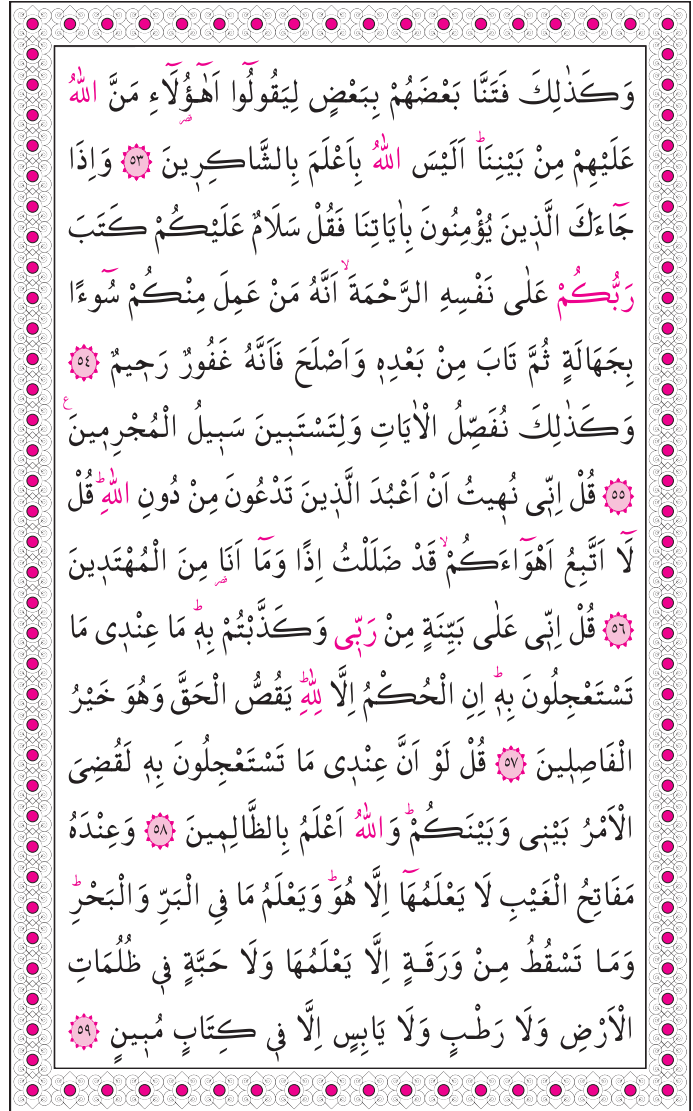 وَكَذٰلِكَ فَتَنَّا بَعْضَهُمْ بِبَعْضٍ لِيَقُولُٓوا اَهٰٓؤُ۬لَٓاءِ مَنَّ اللّٰهُ
عَلَيْهِمْ مِنْ بَيْنِنَاۜ اَلَيْسَ اللّٰهُ بِاَعْلَمَ بِالشَّاكِر۪ينَ ﴿٥٣﴾ وَاِذَا
جَٓاءَكَ الَّذ۪ينَ يُؤْمِنُونَ بِاٰيَاتِنَا فَقُلْ سَلَامٌ عَلَيْكُمْ كَتَبَ
رَبُّكُمْ عَلٰى نَفْسِهِ الرَّحْمَةَۙ اَنَّهُ مَنْ عَمِلَ مِنْكُمْ سُٓوءًا
بِجَهَالَةٍ ثُمَّ تَابَ مِنْ بَعْدِه۪ وَاَصْلَحَ فَاَنَّهُ غَفُورٌ رَح۪يمٌ ﴿٥٤﴾
وَكَذٰلِكَ نُفَصِّلُ الْاٰيَاتِ وَلِتَسْتَب۪ينَ سَب۪يلُ الْمُجْرِم۪ينَ۟
﴿٥٥﴾ قُلْ اِنّ۪ي نُه۪يتُ اَنْ اَعْبُدَ الَّذ۪ينَ تَدْعُونَ مِنْ دُونِ اللّٰهِۜ قُلْ
لَٓا اَتَّبِعُ اَهْوَٓاءَكُمْۙ قَدْ ضَلَلْتُ اِذًا وَمَٓا اَنَا۬ مِنَ الْمُهْتَد۪ينَ
﴿٥٦﴾ قُلْ اِنّ۪ي عَلٰى بَيِّنَةٍ مِنْ رَبّ۪ي وَكَذَّبْتُمْ بِه۪ۜ مَا عِنْد۪ي مَا
تَسْتَعْجِلُونَ بِه۪ۜ اِنِ الْحُكْمُ اِلَّا لِلّٰهِۜ يَقُصُّ الْحَقَّ وَهُوَ خَيْرُ
الْفَاصِل۪ينَ ﴿٥٧﴾ قُلْ لَوْ اَنَّ عِنْد۪ي مَا تَسْتَعْجِلُونَ بِه۪ لَقُضِيَ
الْاَمْرُ بَيْن۪ي وَبَيْنَكُمْۜ وَاللّٰهُ اَعْلَمُ بِالظَّالِم۪ينَ ﴿٥٨﴾ وَعِنْدَهُ
مَفَاتِحُ الْغَيْبِ لَا يَعْلَمُهَٓا اِلَّا هُوَۜ وَيَعْلَمُ مَا فِي الْبَرِّ وَالْبَحْرِۜ
وَمَا تَسْقُطُ مِنْ وَرَقَةٍ اِلَّا يَعْلَمُهَا وَلَا حَبَّةٍ ف۪ي ظُلُمَاتِ
الْاَرْضِ وَلَا رَطْبٍ وَلَا يَابِسٍ اِلَّا ف۪ي كِتَابٍ مُب۪ينٍ ﴿٥٩﴾